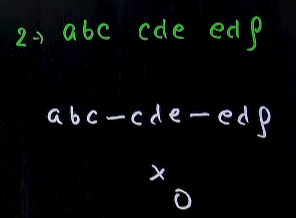 2→ abc cde edf
abc-cde-edf
x
0